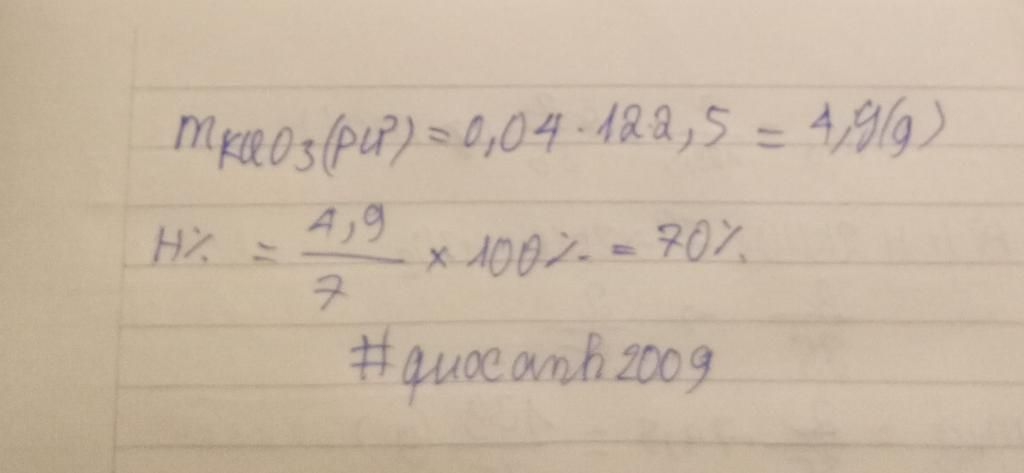 mKClO3(pứ) = 0,04 . 122,5 = 4,9(g)
H% = 4,9/7 × 100% = 70%.
#quocanh2009